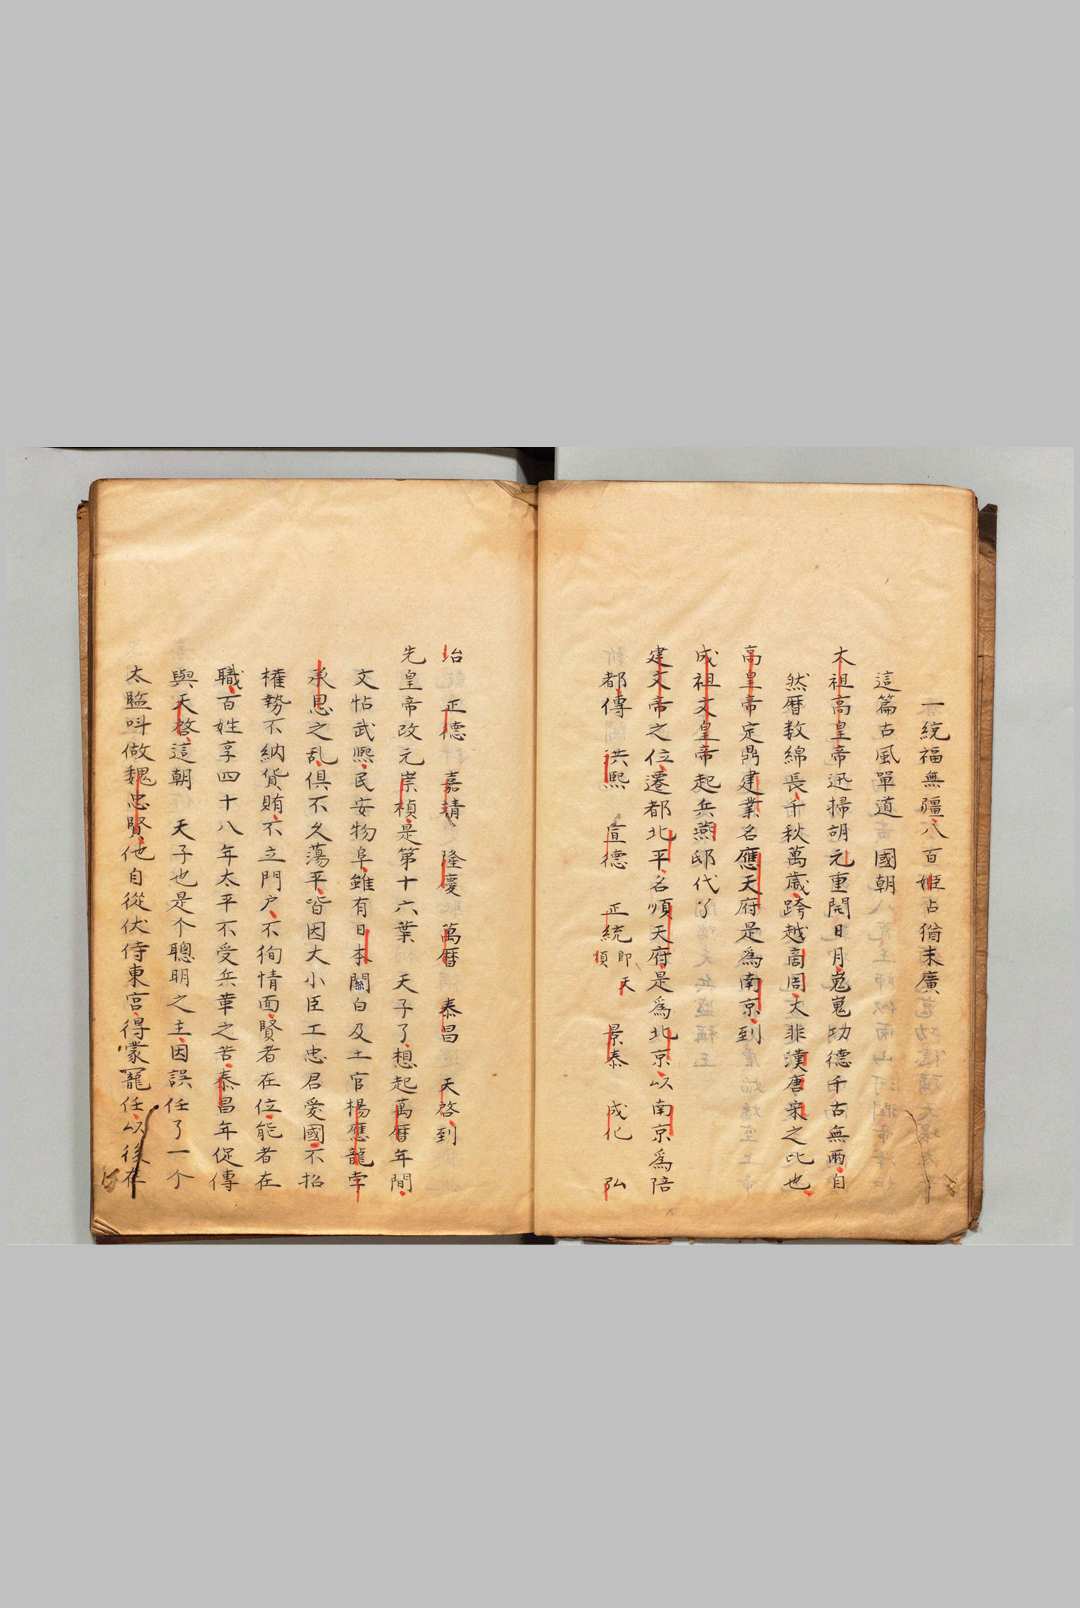 一統福無疆八百姬占尙未廣
這篇古風單道　國朝
太祖高皇帝迅掃胡元重開日月嵬嵬功德千古無兩自
然暦数綿長千秋萬歳跨越商周大非漢唐宋之比也
高皇帝定鼎建業名應天府是爲南京到
成祖文皇帝起兵燕邸代了
建文帝之位遷都北平名順天府是爲北京以南京爲陪
都傳　洪熙　宣德　正統即天順　景泰　成化　弘
治　正德　嘉靖　隆慶　萬暦　泰昌　天啓到
先皇帝改元崇禎是第十六葉　天子了想起萬暦年間
文恬武熙民安物阜雖有日本關白及土官楊應龍孛
承恩之乱俱不久蕩平皆因大小臣工忠君愛國不招
權勢不納貨賄不立門户不徇情面賢者在位能者在
職百姓享四十八年太平不受兵革之苦泰昌年促傳
與天啓這朝　天子也是个聰明之主因誤任了一个
太監叫做魏忠賢他自從伏侍東宮得蒙寵任以後在